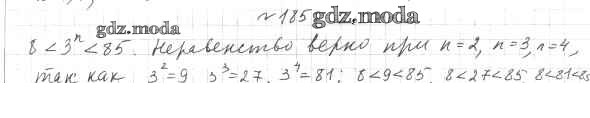 №185 gdz.moda
gdz.moda
8 < 3ⁿ < 85. Неравенство верно при n = 2, n = 3, n = 4,
так как 3² = 9. 3³ = 27. 3⁴ = 81: 8 < 9 < 85. 8 < 27 < 85. 8 < 81 < 85